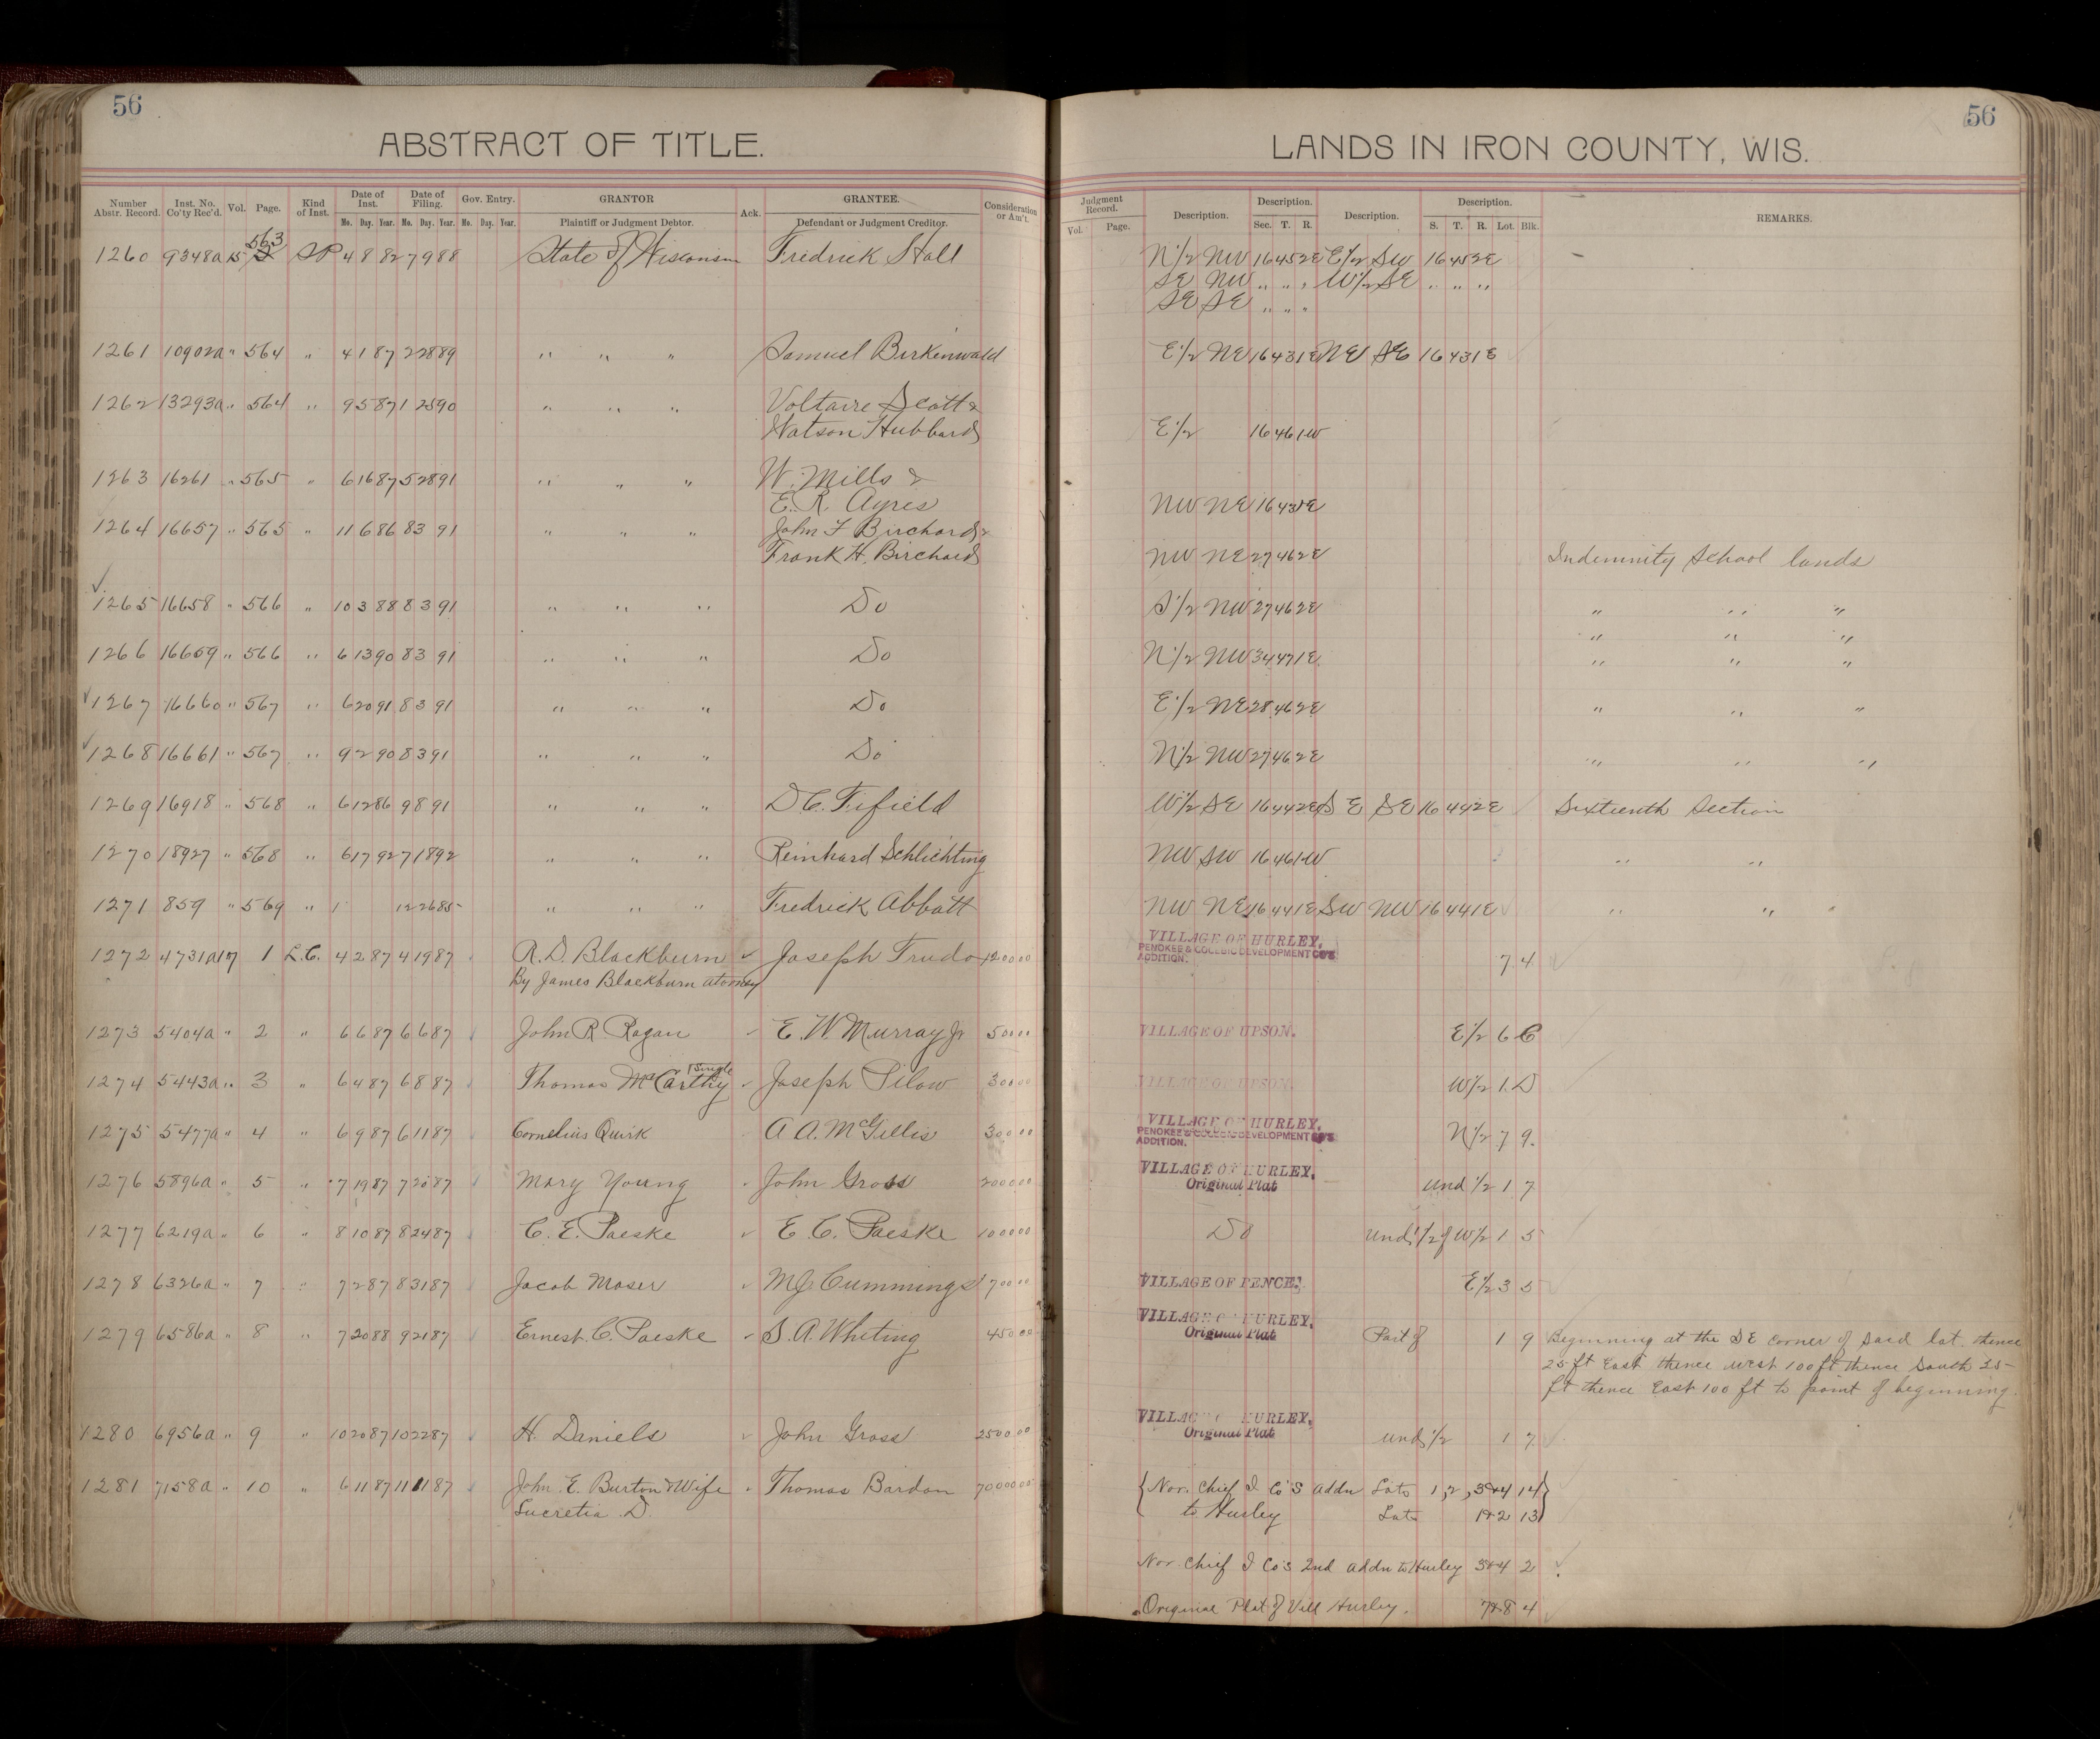 56
56
ABSTRACT OF TITLE.
LANDS IN IRON COUNTY, WIS.
Number Abstr. Record. Inst. No. Co'ty Rec'd. Vol. Page. Kind of Inst. Date of Inst. Mo. Day. Year. Date of Filing. Mo. Day. Year. Gov. Entry. Mo. Day. Year. GRANTOR Plaintiff or Judgment Debtor. Ack. GRANTEE. Defendant or Judgment Creditor. Consideration or Am't. Judgment Record. Vol. Page. Description. Description. Sec. T. R. Description. Description. S. T. R. Lot. Blk. REMARKS.
563
1260 9348a 15 SP 4 8 82 7 9 88 State of Wisconsin Fredrick Stall N 1/2 NW 16 45 2E E 1/2 SW 16 45 2E
SE NW " " " W 1/2 SE " " "
SE SE " " "
1261 10902a " 564 " 4 1 87 2 28 89 " " " Samuel Birkenwald E 1/2 NE 16 43 1E NE SE 16 43 1E
1262 13293a " 564 " 9 5 87 1 25 90 " " " Voltaire Scott &
Watson Hubbard E 1/2 16 46 1W
1263 16261 " 565 " 6 16 87 5 28 91 " " " W. Mills &
E. R. Ayres NW NE 16 43 1E
1264 16657 " 565 " 11 6 86 8 3 91 " " " John F Birchard &
Frank H. Birchard NW NE 27 46 2E Indemnity School lands
1265 16658 " 566 " 10 3 88 8 3 91 " " " Do S 1/2 NW 27 46 2E " " "
" " "
1266 16659 " 566 " 6 13 90 8 3 91 " " " Do N 1/2 NW 34 47 1E " " "
1267 16660 " 567 " 6 20 91 8 3 91 " " " Do E 1/2 NE 28 46 2E " " "
1268 16661 " 567 " 9 2 90 8 3 91 " " " Do N 1/2 NW 27 46 2E " " "
1269 16918 " 568 " 6 12 86 9 8 91 " " " D C. Fifield W 1/2 SE 16 44 2E S E SE 16 44 2E Sixteenth Section
1270 18927 " 568 " 6 17 92 7 18 92 " " " Reinhard Schlichting NW SW 16 46 1W " "
1271 859 " 569 " 1 12 26 85 " " " Fredrick Abbott NW NE 16 44 1E SW NW 16 44 1E " "
VILLAGE OF HURLEY.
1272 4731a 17 1 L.C. 4 2 87 4 19 87 R. D. Blackburn Joseph Trudo 1200 00 PENOKEE & GOGEBIC DEVELOPMENT CO'S ADDITION. 7 4
By James Blackburn atorney
1273 5404a " 2 " 6 6 87 6 6 87 John R. Ragan E. W. Murray Jr 50 00 VILLAGE OF UPSON. E 1/2 6 C
1274 5443a " 3 " 6 4 87 6 8 87 Thomas McCarthy Single Joseph Pilow 30 00 VILLAGE OF UPSON. W 1/2 1 D
1275 5477a " 4 " 6 9 87 6 11 87 Cornelius Quirk A A. McGillis 300 00 VILLAGE OF HURLEY. PENOKEE & GOGEBIC DEVELOPMENT CO'S ADDITION. N 1/2 7 9.
1276 5896a " 5 " 7 19 87 7 20 87 Mary Young John Gross 2000 00 VILLAGE OF HURLEY. Original Plat und 1/2 1 7
1277 6219a " 6 " 8 10 87 8 24 87 C. E. Paeske E. C. Paeske 1000 00 Do und 1/2 of W 1/2 1 5
1278 6326a " 7 " 7 2 87 8 31 87 Jacob Moser M J Cummings 700 00 VILLAGE OF PENCE. E 1/2 3 5
1279 6586a " 8 " 7 20 88 9 21 87 Ernest C. Paeske S. A. Whiting 450 00 VILLAGE OF HURLEY. Original Plat Part of 1 9 Beginning at the SE corner of said lot. thence
25 ft East thence west 100 ft thence South 25
ft thence East 100 ft to point of beginning.
1280 6956a " 9 " 10 20 87 10 22 87 H. Daniels John Gross 2500 00 VILLAGE OF HURLEY. Original Plat und 1/2 1 7
1281 7158a " 10 " 6 11 87 11 1 87 John E. Burton & Wife Thomas Bardon 7000 00 Nor. Chief I Co'S addn Lots 1, 2, 3 & 4 14
Lucretia D. to Hurley Lots 1 & 2 13
Nor Chief I Co's 2nd addn to Hurley 3 & 4 2
Original Plat of Vill Hurley. 7 & 8 4